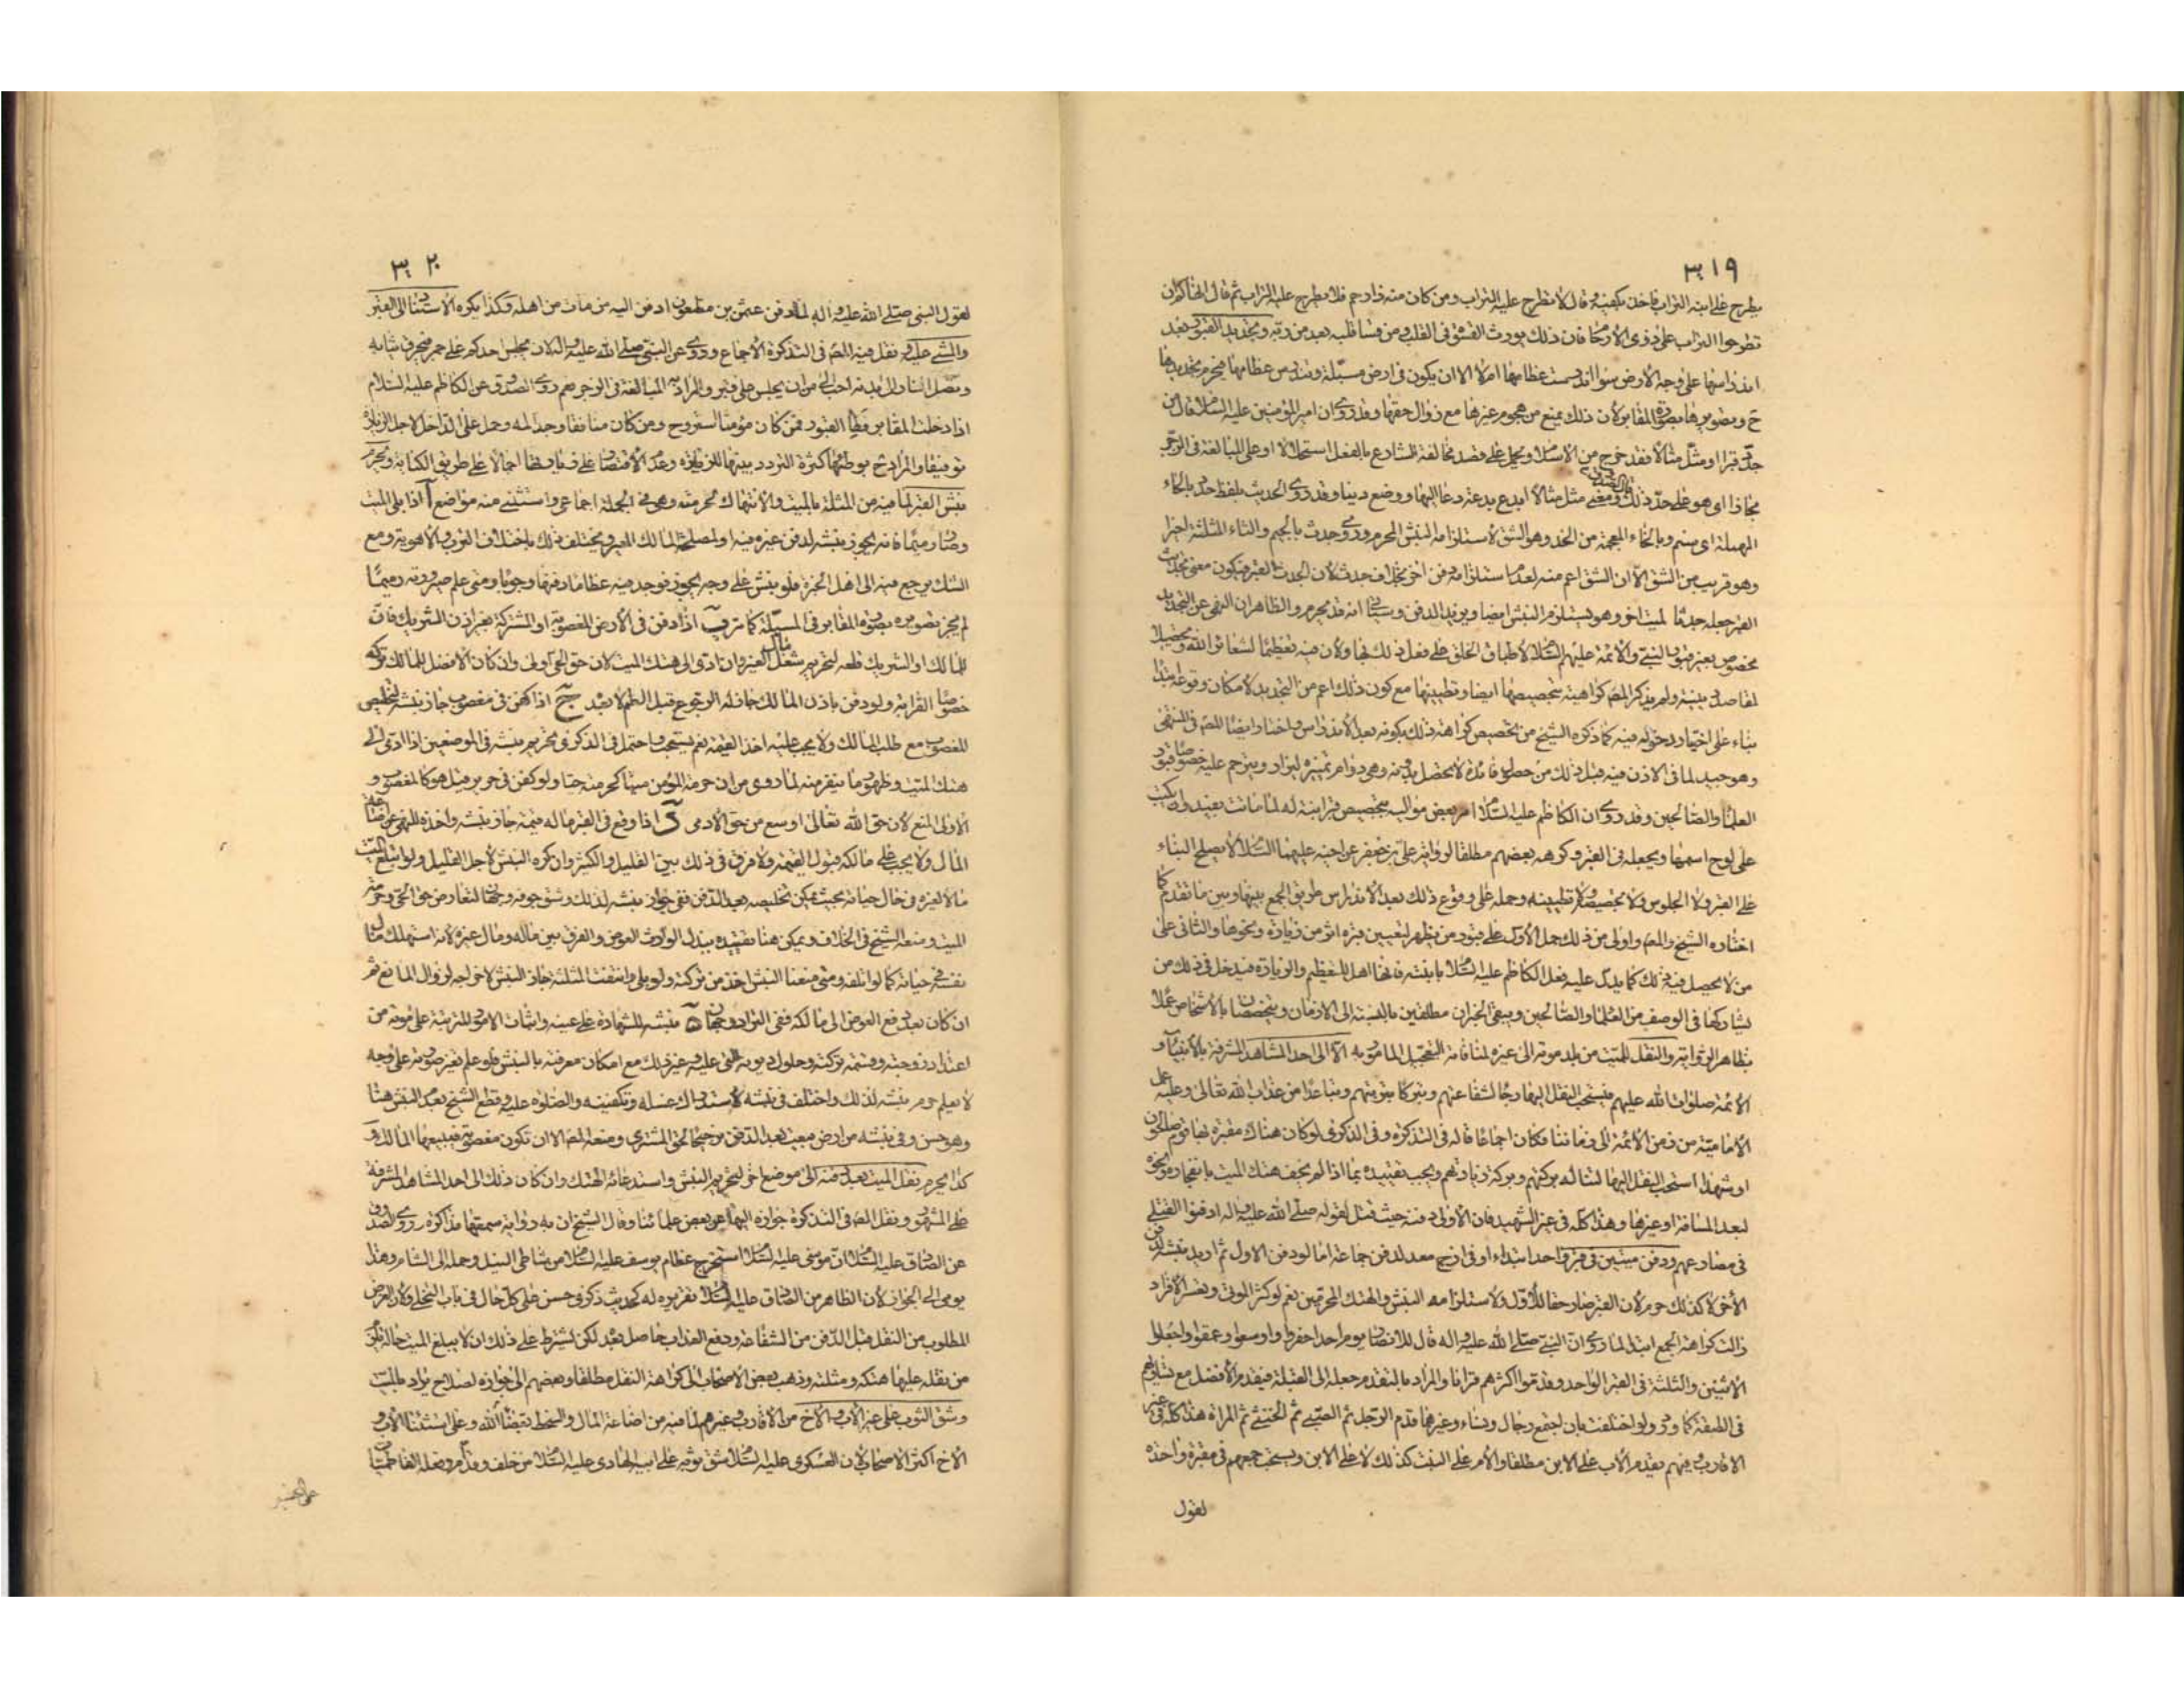 ٣١٩
يطرح على ابنه التراب فاخذ بكفيه وقال لا تطرح عليه التراب ومن كان منه ذا رحم فلا يطرح عليه التراب ثم قال انهاكم ان
تطرحوا التراب على ذوى الارحام فان ذلك يورث القسوة فى القلب ومن قسا قلبه بعد من ربه وتجديد القبور بعد
اندراسها على وجه الارض سواء اندرست عظامها ام لا الا ان يكون فى ارض مسبلة وتندرس عظامها فيحرم تجديدها
ح وتصويرها بصورة المقابر لان ذلك يمنع من هجوم غيرها مع زوال حقها وقد روى ان امير المؤمنين عليه السلام قال من
جدد قبرا او مثل مثالا فقد خرج من الاسلام ويحمل على قصد مخالفة الشارع بالفعل استحلالا او على المبالغة فى الزجر
مجازا اى هو على حد ذلك ومعنى مثل مثالا ابدع بدعة دعا اليها ووضع دينا وقد روى الحديث بلفظ حدد بالحاء
المهملة اى سنم وبالخاء المعجمة من الخد وهو الشق لاستلزامه النبش المحرم وروى جدث بالجيم والثاء المثلثة اخيرا
وهو قريب من الشق الا ان الشق اعم منه لعدم استلزامه دفن آخر بخلاف جدث لان الجدث القبر فيكون معنى تجديث
القبر جعله جدثا لميت آخر وهو يستلزم النبش ايضا ويزيد الدفن وسياتى انه قد يحرم والظاهر ان النهى عن التجديد
مخصوص بغير قبور النبى والائمة عليهم السلام لاطباق الخلق على فعل ذلك بها ولان فيه تعظيما لشعائر الله وتحصيلا
لمقاصد دينية ولم يذكر المص كراهية تجصيصها ايضا وتطيينها مع كون ذلك اعم من التجديد لامكان وقوعه ابتداء
بناء على اختيار دخوله فيه كما ذكره الشيخ من تخصيص كراهة ذلك بكونه بعد الاندراس واختاره ايضا المص فى المنتهى
وهو جيد لما فى الاذن فيه قبل ذلك من حصول فائدة لا تحصل بدونه وهى دوام تميزه ليزار ويترحم عليه خصوصا قبور
العلماء والصالحين وقد روى ان الكاظم عليه السلام امر بعض مواليه بتجصيص قبر ابنة له لما ماتت بفيد وان يكتب
على لوح اسمها ويجعله فى القبر وكرهه بعضهم مطلقا لرواية على بن جعفر عن اخيه عليهما السلام لا يصلح البناء
على القبر ولا الجلوس ولا تجصيصه ولا تطيينه وحمله على وقوع ذلك بعد الاندراس طريق الجمع بينها وبين ما تقدم كما
اختاره الشيخ والمص واولى من ذلك حمل الاول على قبور من يظهر لتعيين قبره اثر من زيارة ونحوها والثانى على
من لا يحصل فيه ذلك كما يدل عليه فعل الكاظم عليه السلام بابنته فانها اهل للتعظيم والزيارة فيدخل فى ذلك من
يشاركها فى الوصف من العلماء والصالحين ويبقى الخبران مطلقين بالنسبة الى الازمان ويخصصان بالاشخاص عملا
بظاهر الرواية والنقل للميت من بلد موته الى غيره لمنافاته التعجيل المامور به الا الى احد المشاهد المشرفة بالانبياء و
الائمة صلوات الله عليهم فيستحب النقل اليها رجاء لشفاعتهم وتبركا بتربتهم وتباعدا من عذاب الله تعالى وعليه عمل
الامامية من زمن الائمة الى زماننا فكان اجماعا قاله فى التذكرة وفى الذكرى لو كان هناك مقبرة بها قوم صالحون
او شهداء استحب النقل اليها لتناله بركتهم وبركة زيارتهم ويجب تقييده بما اذا لم يخف هتك الميت بانفجاره ونحوه
لبعد المسافة او غيرها وهذا كله فى غير الشهيد فان الاولى دفنه حيث قتل لقوله صلى الله عليه واله ادفنوا القتلى
فى مصارعهم ودفن ميتين فى قبر واحد ابتداء او فى ازج معد لدفن جماعة اما لو دفن الاول ثم اريد نبشه لدفن
الآخر لا كذلك حرم لان القبر صار حقا للاول ولاستلزامه النبش والهتك المحرمين نعم لو كثر الموتى وتعسر الافراد
زالت كراهة الجمع ابتداء لما روى ان النبى صلى الله عليه واله قال للانصار يوم احد احفروا واوسعوا وعمقوا واجعلوا
الاثنين والثلثة فى القبر الواحد وقدموا اكثرهم قرانا والمراد بالتقدم جعله الى القبلة فيقدم الافضل مع تساويهم
فى الطبقة كما ورد ولو اختلفت بان اجتمع رجال ونساء وغيرهما قدم الرجل ثم الصبى ثم الخنثى ثم المراة هذا كله فى غير
الاقارب وفيهم يقدم الاب على الابن مطلقا والام على البنت كذلك لا على الابن ويستحب جمعهم فى مقبرة واحدة
لقول
٣٢٠
لقول النبى صلى الله عليه واله لما دفن عثمن بن مظعون ادفن اليه من مات من اهله وكذا يكره الاستناد الى القبر
والمشى عليه ونقل فيه المص فى التذكرة الاجماع وروى عن النبى صلى الله عليه واله لان يجلس احدكم على جمر فتحرق ثيابه
وتصل النار الى بدنه احب الى من ان يجلس على قبر والمراد به المبالغة فى الزجر نعم روى الصدوق عن الكاظم عليه السلام
اذا دخلت المقابر فطأ القبور فمن كان مؤمنا استروح ومن كان منافقا وجد المه وحمل على الداخل لاجل الزيارة
توفيقا والمراد ح بوطئها كثرة التردد بينها للزيارة وعدم الاقتصار على زيارتها اجمالا على طريق الكناية ويحرم
نبش القبر لما فيه من المثلة بالميت والانتهاك لحرمته وهو فى الجملة اجماعى واستثنى منه مواضع آ اذا بلى الميت
وصار رميما فانه يجوز نبشه لدفن غيره فيه او لمصلحة المالك المعير ويختلف ذلك باختلاف الترب والاهوية ومع
الشك يرجع فيه الى اهل الخبرة فلو نبش على وجه يجوز فوجد فيه عظاما دفنها وجوبا ومتى علم صيرورته رميما
لم يجز تصويره بصورة المقابر فى المسبلة كما مر ب اذا دفن فى الارض المغصوبة او المشتركة بغير اذن الشريك فان
للمالك او الشريك قلعه لتحريم شغل مال الغير وان ادى الى هتك الميت لان حق الحى اولى وان كان الافضل للمالك تركه
خصوصا القرابة ولو دفن باذن المالك جاز له الرجوع قبل الطم لا بعد ج اذا كفن فى مغصوب جاز نبشه لتخليص
المغصوب مع طلب المالك ولا يجب عليه اخذ القيمة نعم يستحب واحتمل فى الذكرى تحريم نبشه فى الموضعين اذا ادى الى
هتك الميت وظهور ما ينفر منه لما روى من ان حرمة المؤمن ميتا كحرمته حيا ولو كفن فى حرير قيل هو كالمغصوب و
الاولى المنع لان حق الله تعالى اوسع من حق الادمى د اذا وقع فى القبر ما له قيمة جاز نبشه واخذه للنهى عن اضاعة
المال ولا يجب على مالكه قبول القيمة ولا فرق فى ذلك بين القليل والكثير وان كره النبش لاجل القليل ولو ابتلع الميت
مالا لغيره فى حال حياته بحيث يمكن تخليصه بعد الدفن ففى جواز نبشه لذلك وشق جوفه وجهان لتعارض حق الحى وحرمة
الميت ومنعه الشيخ فى الخلاف ويمكن هنا تقييده ببذل الوارث العوض والفرق بين ماله ومال غيره لانه استهلك مال
نفسه فى حياته كما لو اتلفه ومتى منعنا النبش اخذ من تركته ولو بلى وانتفت المثلة جاز النبش لاخراجه لزوال المانع ثم
ان كان بعد دفع العوض الى مالكه ففى التراد وجهان ه نبشه للشهادة على عينه واثبات الامور المترتبة على موته من
اعتداد زوجته وقسمة تركته وحلول ديونه التى عليه وغير ذلك مع امكان معرفته بالنبش فلو علم تغير صورته على وجه
لا يعلم حرم نبشه لذلك واختلف فى نبشه لاستدراك غسله وتكفينه والصلوة عليه وقطع الشيخ بعدم النبش هنا
وهو حسن وفى نبشه من ارض مبيعة بعد الدفن ترجيحا لحق المشترى ومنعه المص الا ان تكون مغصوبة فيبيعها المالك و
كذا يحرم نقل الميت بعد دفنه الى موضع آخر لتحريم النبش واستدعائه الهتك وان كان ذلك الى احد المشاهد المشرفة
على المشهور ونقل المص فى التذكرة جوازه اليها عن بعض علمائنا وقال الشيخ ان به رواية سمعتها مذاكرة وروى الصدوق
عن الصادق عليه السلام ان موسى عليه السلام استخرج عظام يوسف عليه السلام من شاطئ النيل وحمله الى الشام وهذا
يومى الى الجواز لان الظاهر من الصادق عليه السلام تقريره له كحديث ذكرى حسن على كل حال فى باب التخلى ولان الغرض
المطلوب من النقل قبل الدفن من الشفاعة ودفع العذاب حاصل بعده لكن يشترط على ذلك ان لا يبلغ الميت حالة يلزم
من نقله عليها هتكه ومثلته وذهب بعض الاصحاب الى كراهة النقل مطلقا وبعضهم الى جوازه لصلاح يراد بالميت
وشق الثوب على غير الاب والاخ من الاقارب وغيرهم لما فيه من اضاعة المال والسخط بقضاء الله وعلى استثناء الاب و
الاخ اكثر الاصحاب لان العسكرى عليه السلام شق ثوبه على ابيه الهادى عليه السلام من خلف وقدام وفعله الفاطميات